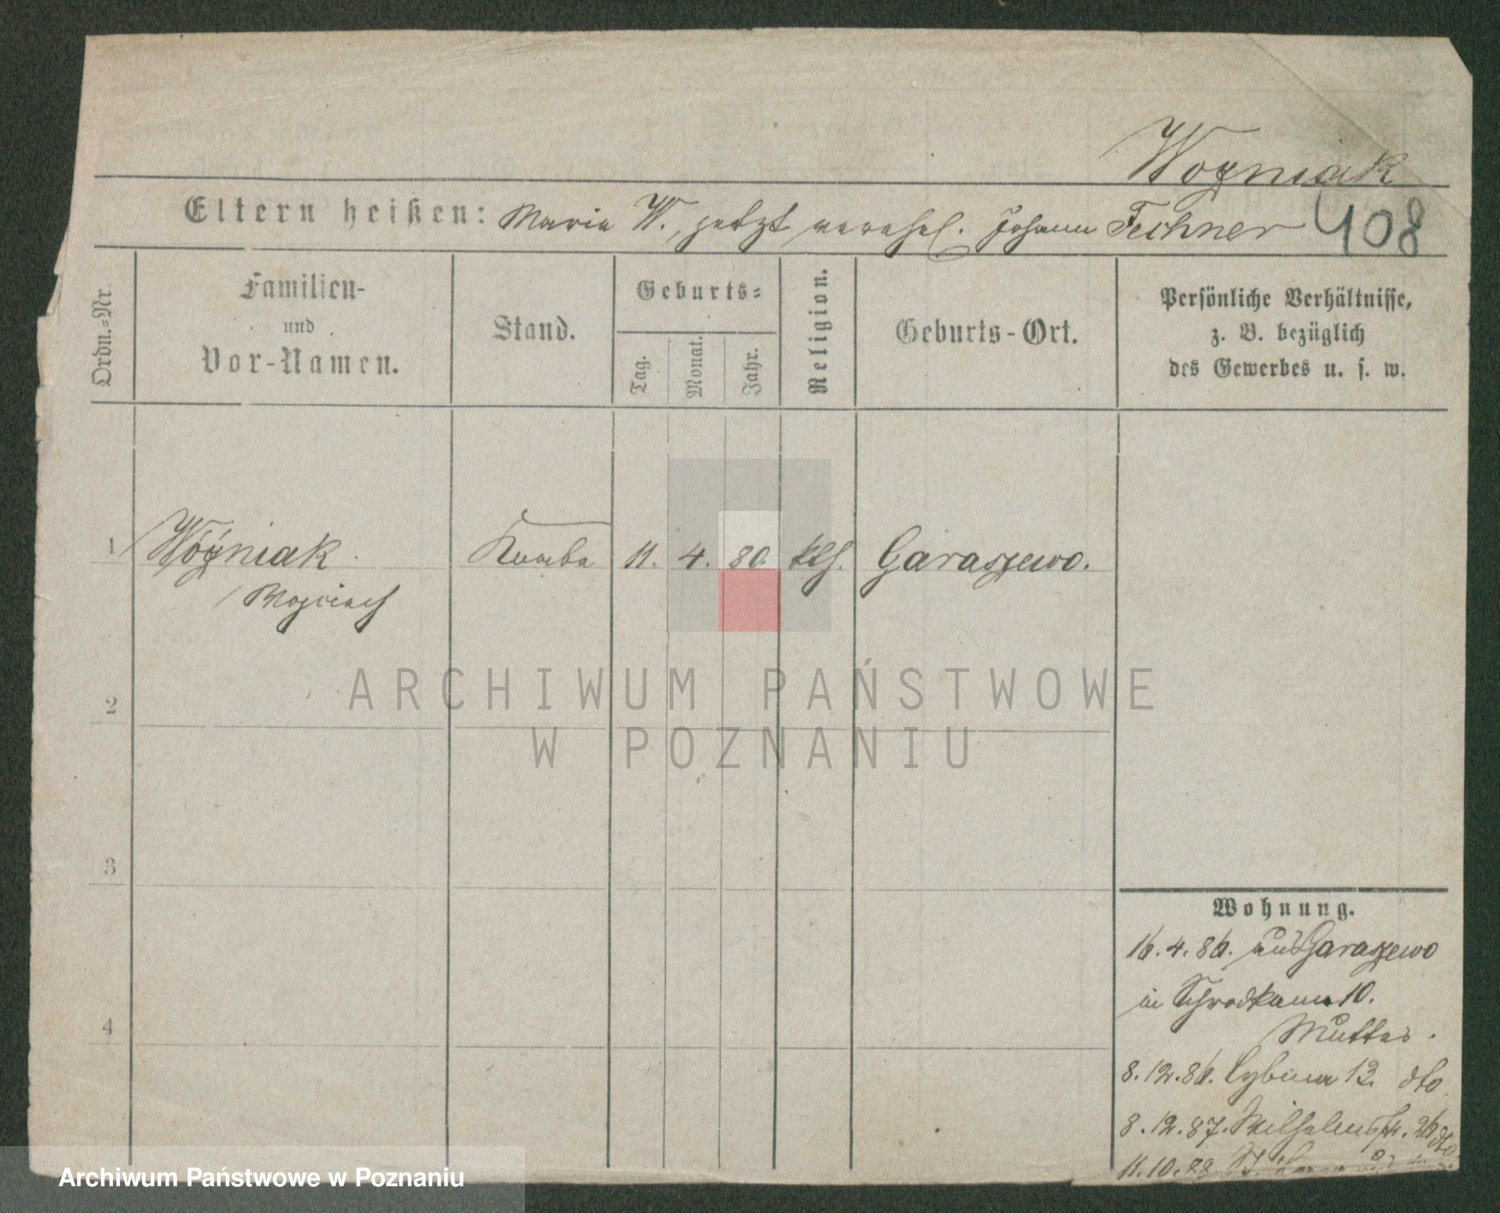 Woźniak
Eltern heißen: Maria W., jetzt verehel. Johann Fechner 408
Ordn.-Nr.
Familien-
und
Vor-Namen.
Stand.
Geburts-
Tag.
Monat.
Jahr.
Religion.
Geburts-Ort.
Persönliche Verhältnisse,
z. B. bezüglich
des Gewerbes u. s. w.
1 Woźniak Knabe 11. 4. 80. kth. Garaszewo.
Wojciech
2
ARCHIWUM PAŃSTWOWE
W POZNANIU
3
4
Wohnung.
16.4.86. aus Garaszewo
in Schrodka 10.
Mutter.
8.12.86. Cybina 13. dto
8.12.87. Wilhelmstr. 26 dto
11.10.89
Archiwum Państwowe w Poznaniu